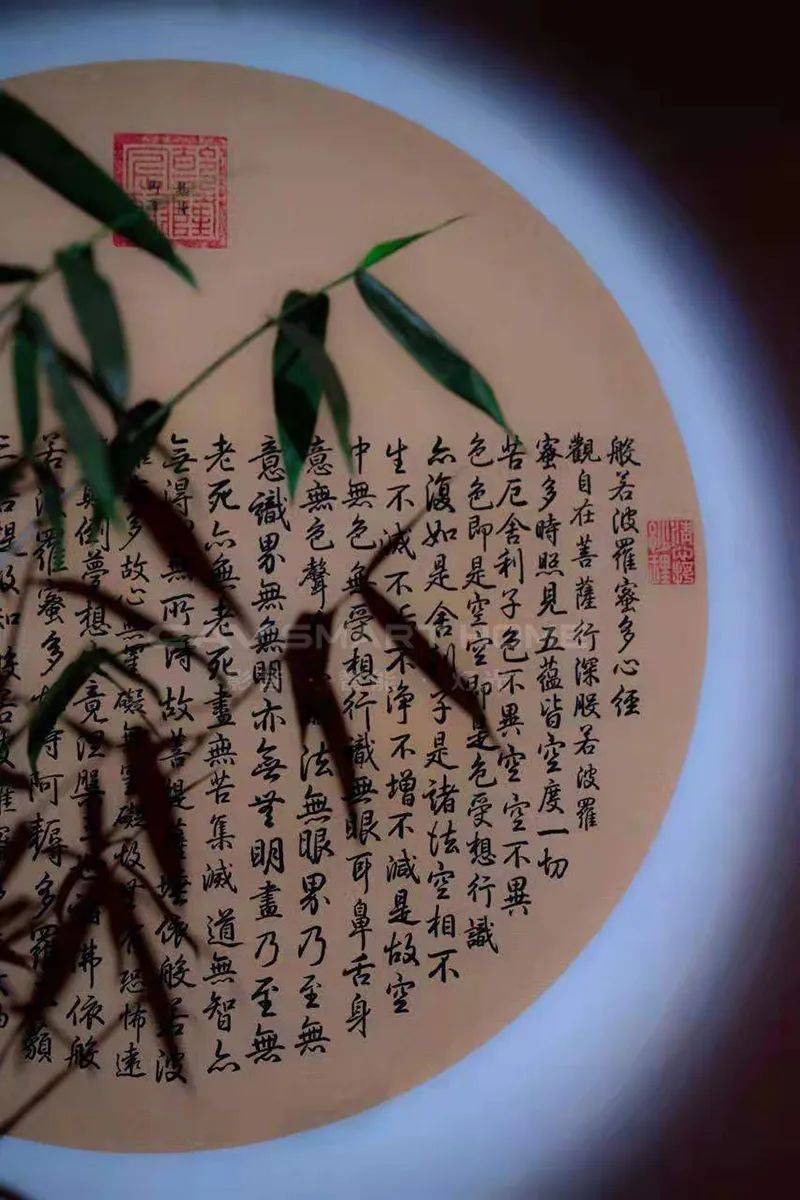 般若波羅蜜多心經
觀自在菩薩行深般若波羅
蜜多時照見五蘊皆空度一切
苦厄舍利子色不異空空不異
色色即是空空即是色受想行識
亦復如是舍利子是諸法空相不
生不滅不不淨不增不減是故空
中無色無受想行識無眼耳鼻舌身
意無色聲法無眼界乃至無
意識界無無明亦無無明盡乃至無
老死亦無老死盡無苦集滅道無智亦
無得無所得故菩提薩埵依般若波
多故心無罣礙無罣礙故有恐怖遠
倒夢想竟涅槃三諸佛依般
若波羅蜜多得阿耨多羅藐
三菩提故知般若波羅
SMART HOME